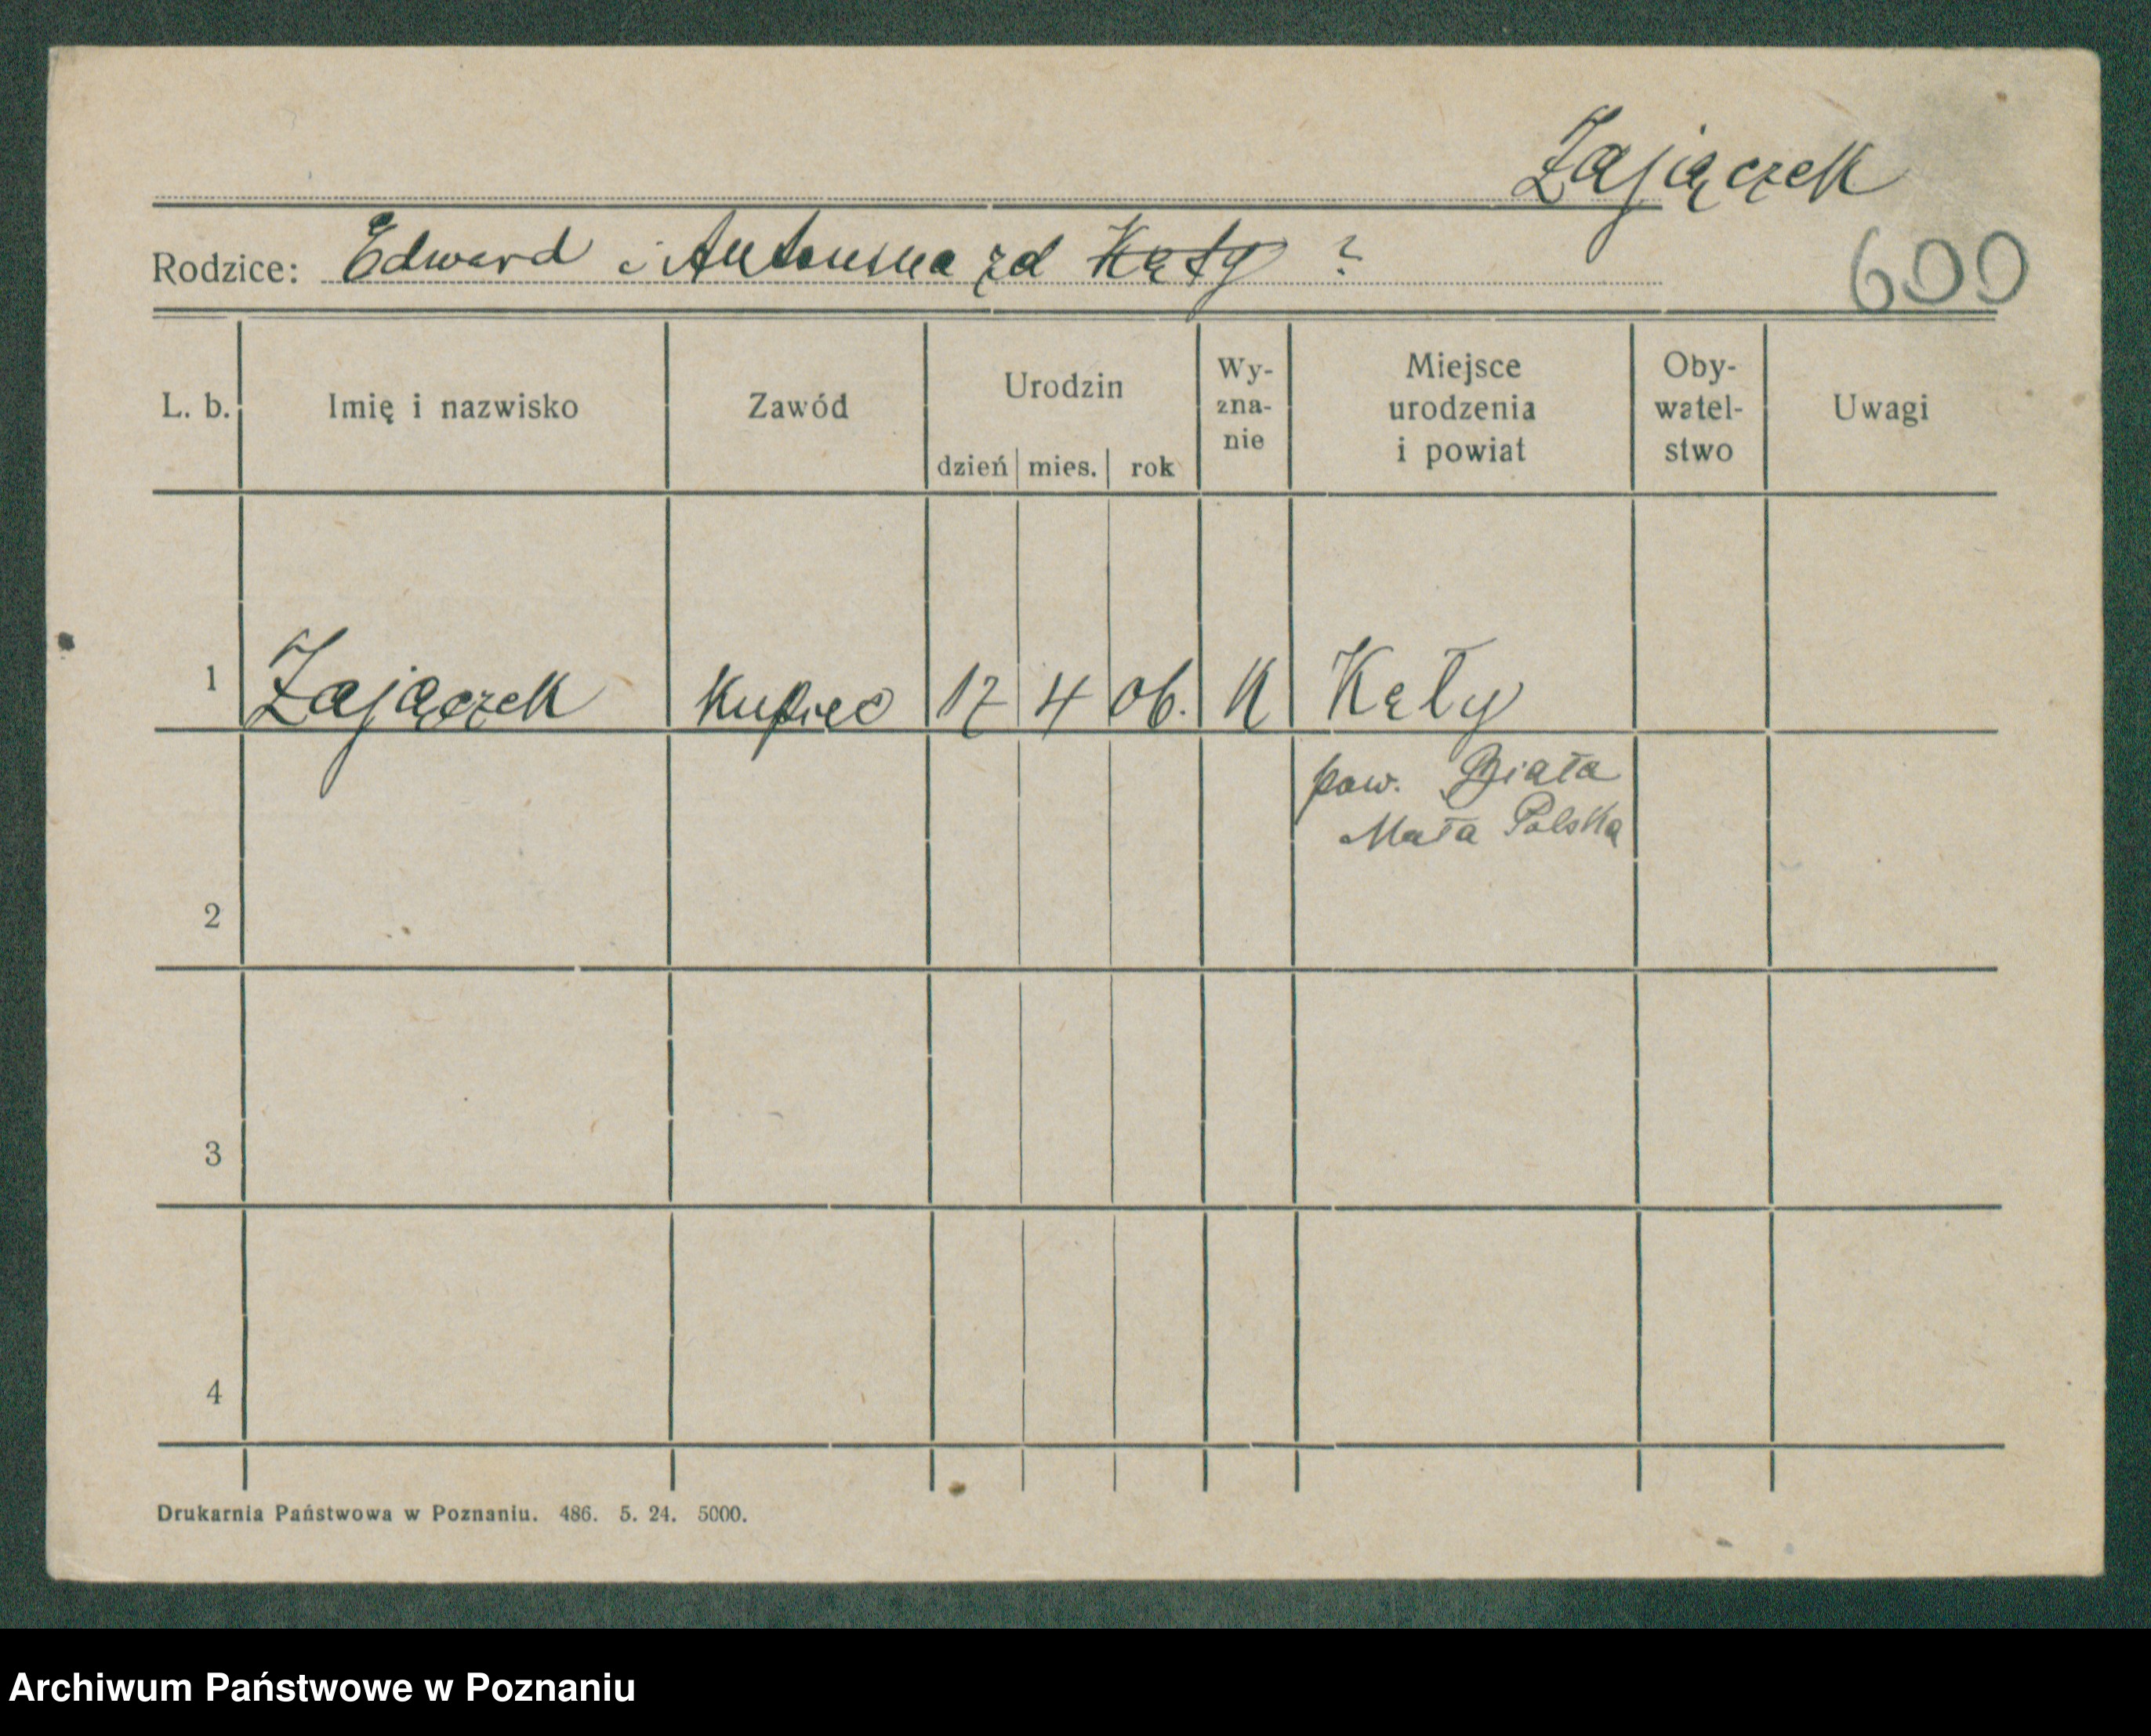 Zajączek
Rodzice: Edward i Antonina zd Kęty ?
600
L. b. Imię i nazwisko Zawód Urodzin dzień mies. rok Wy-zna-nie Miejsce urodzenia i powiat Oby-watel-stwo Uwagi
1 Zajączek Kupiec 17 4 06. K Kęty
pow. Biała
Mała Polska
2
3
4
Drukarnia Państwowa w Poznaniu. 486. 5. 24. 5000.
Archiwum Państwowe w Poznaniu